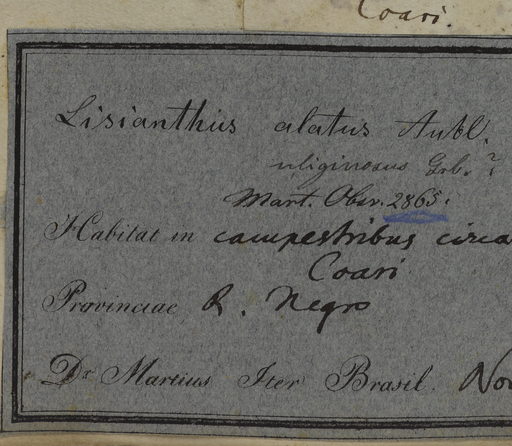 Coari.
Lisianthus alatus Aubl.
uliginosus Grb. ?
Mart. Obsv. 2865.
Habitat in campestribus circa
Coari
Provinciae R. Negro
Dr. Martius Iter Brasil. Nov